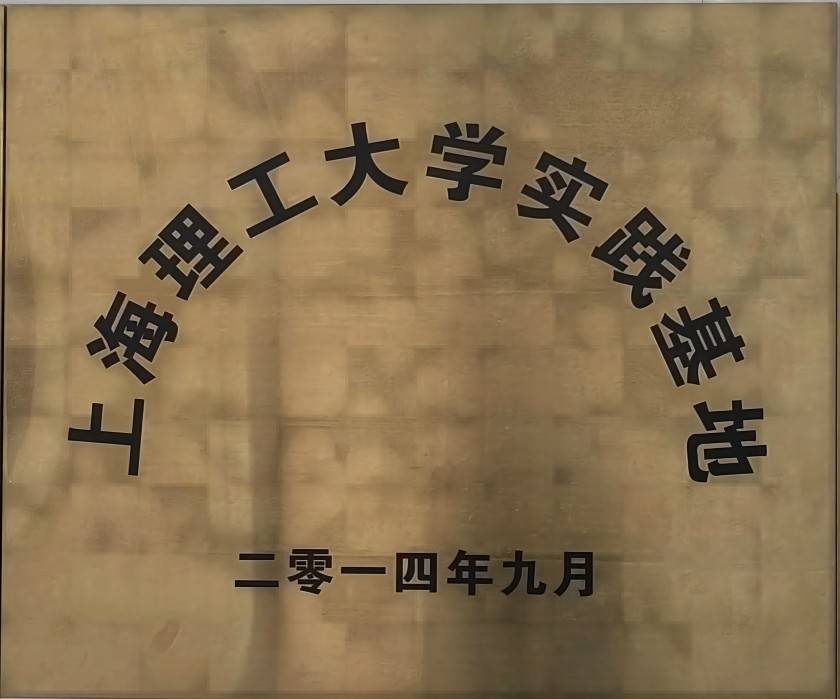 上海理工大学实践基地
二零一四年九月